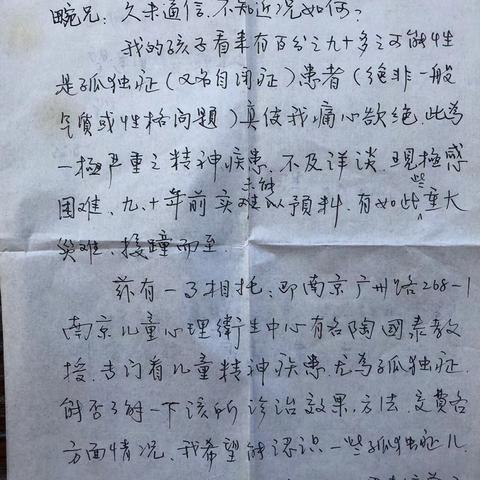 畹兄：久未通信，不知近况如何？
我的孩子看来有百分之九十多之可能性
是孤独症（又名自闭症）患者（绝非一般
气质或性格问题）真使我痛心欲绝，此為
一極严重之精神疾患，不及详谈，現極感
困难、九、十年前实未能預料，有如此些重大
災难，接踵而至.
兹有一了相托：即南京广州路268-1
南京儿童心理衛生中心有名陶國泰教
授，专门看儿童精神疾患，尤為孤独症.
能否了解一下该所诊治效果，方法，交費各
方面情况，我希望能認識一些孤独症儿